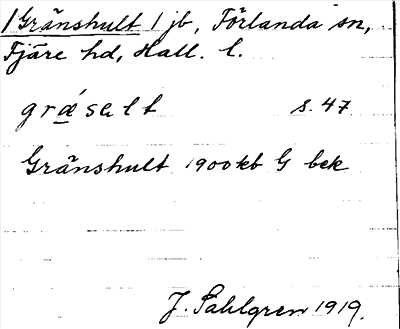 /Gränshult 1 jb, Förlanda sn,
Fjäre hd, Hall. l.
grǽsalt s. 47
Gränshult 1900 kb G bek
J. Sahlgren 1919.